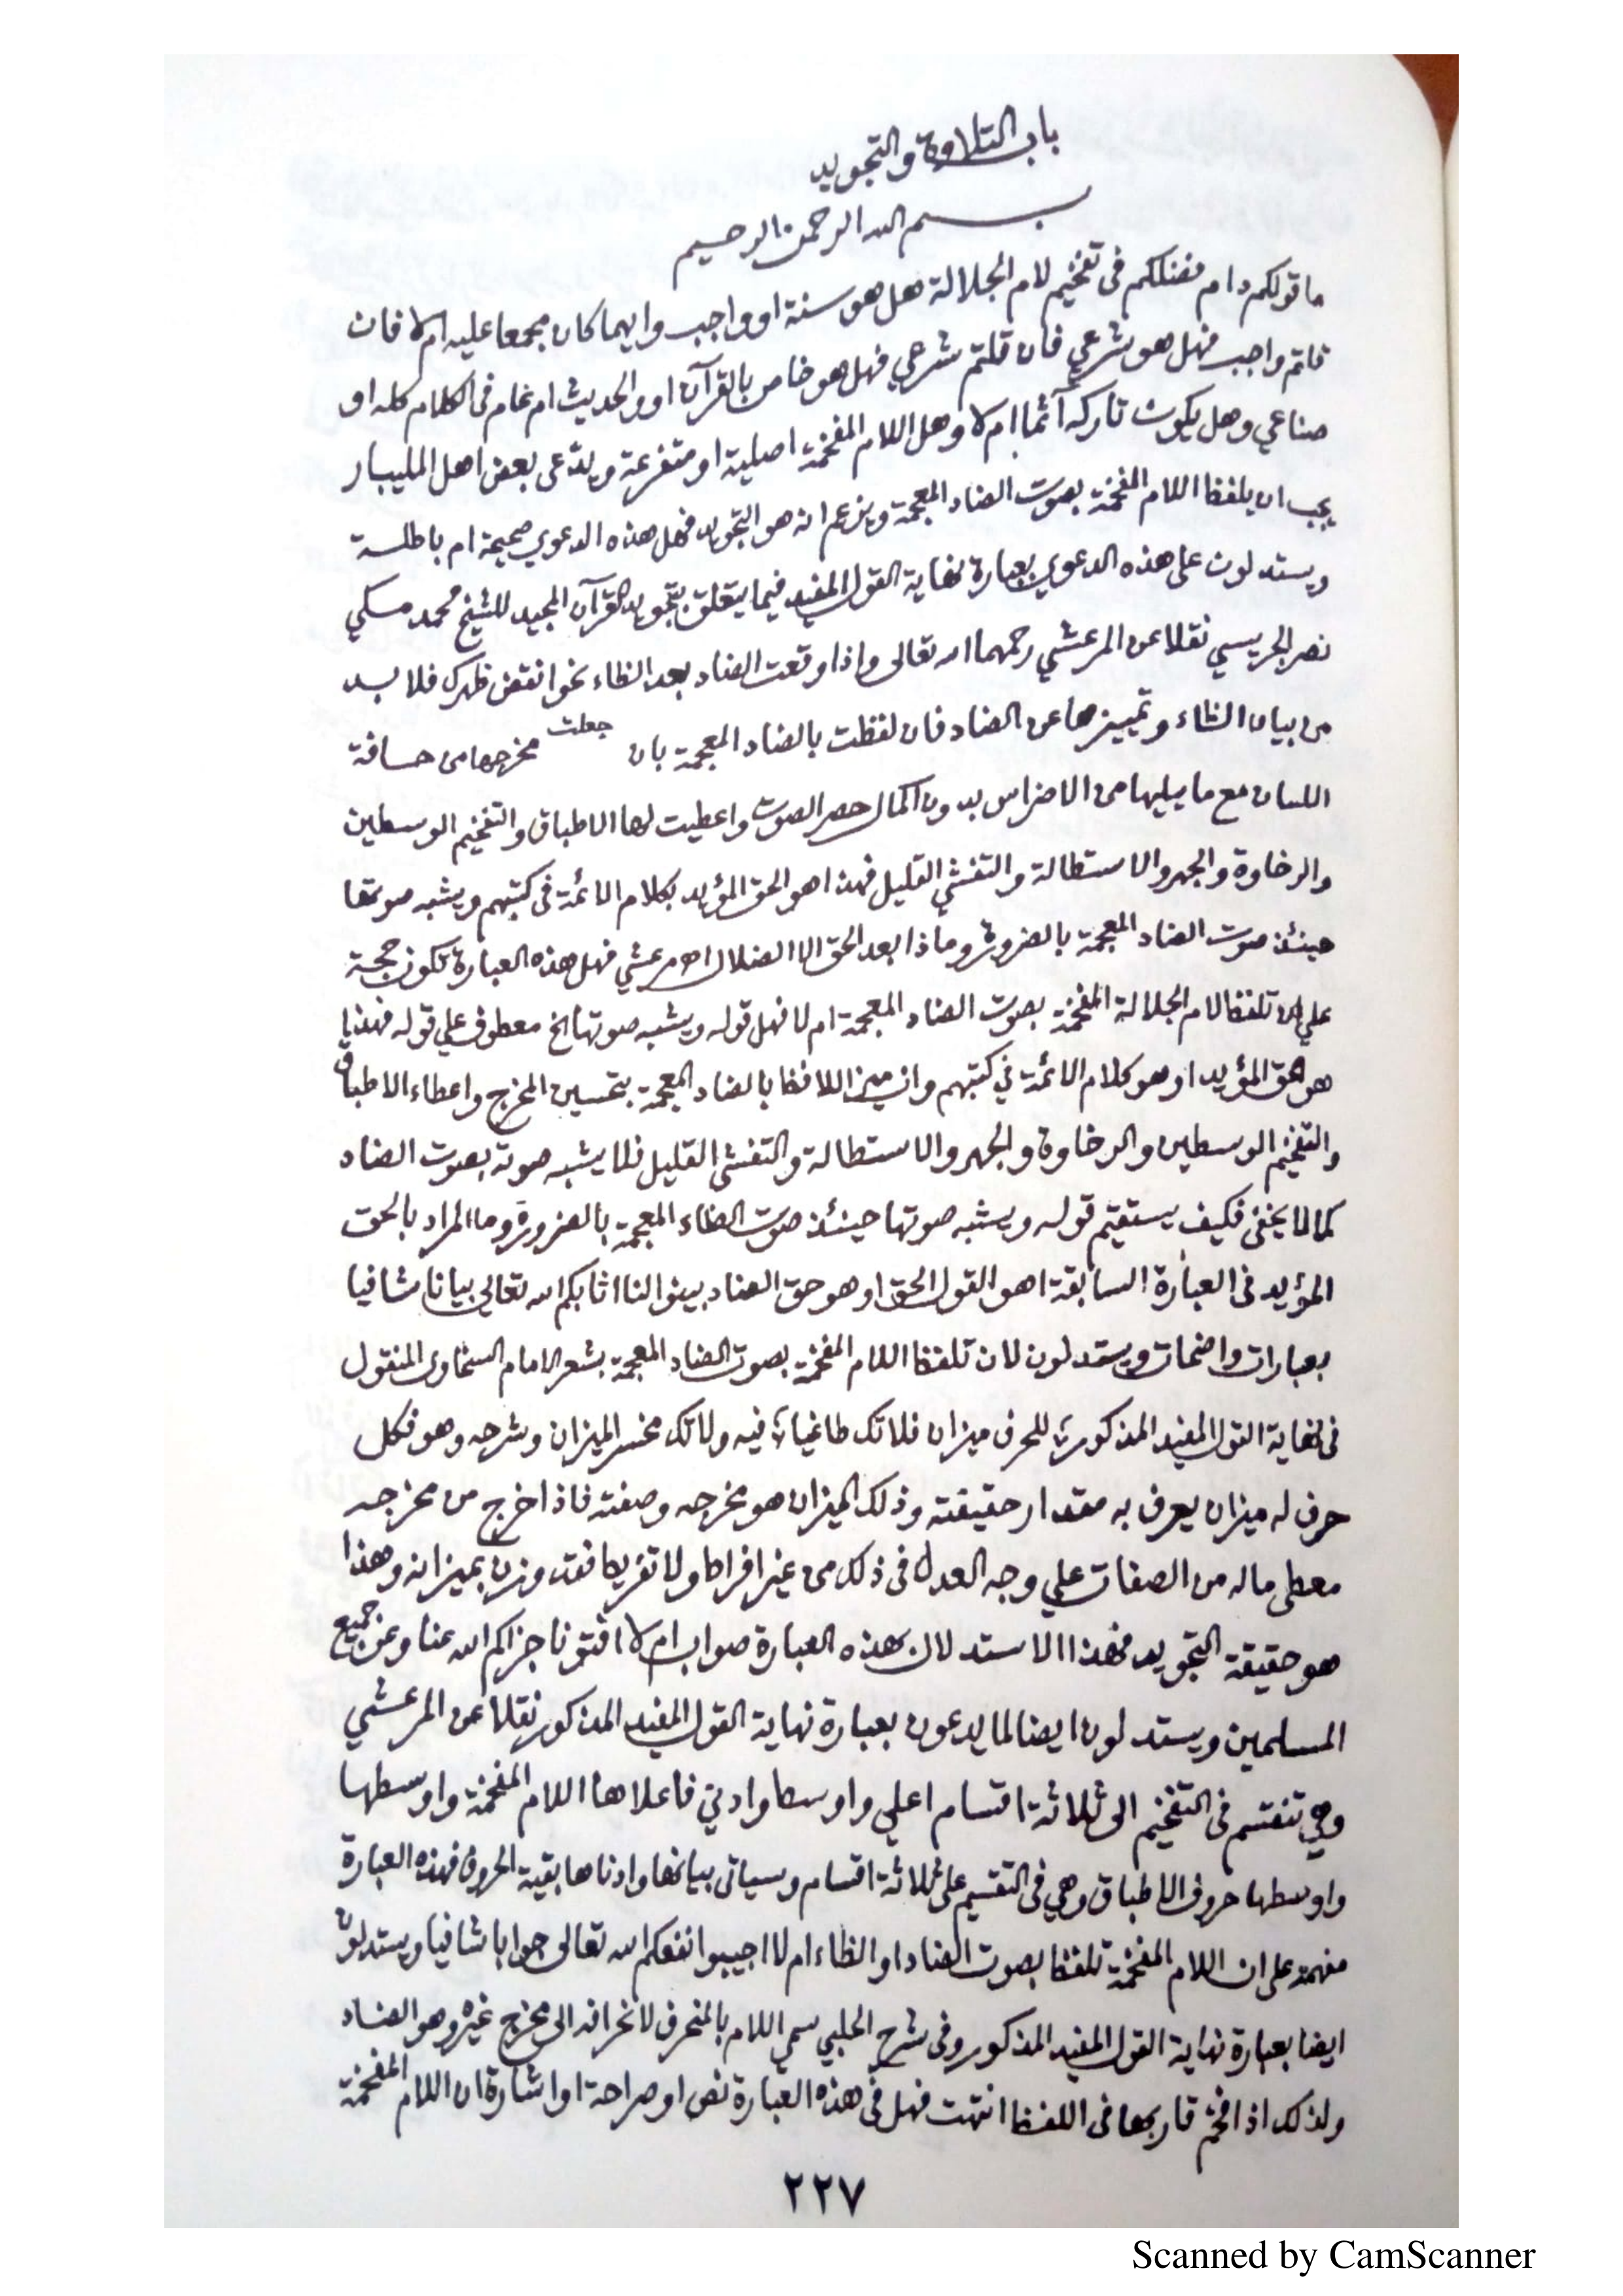 باب التلاوة والتجويد
بسم الله الرحمن الرحيم
ما قولكم دام فضلكم فى تفخيم لام الجلالة هل هو سنة او واجب وايهما كان مجمعا عليه ام لا فان
قلتم واجب فهل هو شرعي فان قلتم شرعي فهل هو خاص بالقرآن او والحديث ام عام فى الكلام كله او
صناعي وهل يكون تاركه آثما ام لا وهل اللام المفخمة اصلية او متفرعة ويدّعى بعض اهل المليبار
يجب ان يلفظ اللام المفخمة بصوت الضاد المعجمة ويزعم انه هو التجويد فهل هذه الدعوي صحيحة ام باطلة
ويستدلون على هذه الدعوي بعبارة نهاية القول المفيد فيما يتعلق بتجويد القرآن المجيد للشيخ محمد مكي
نصر الجريسي نقلا عن المرعشي رحمهما الله تعالى واذا وقعت الضاد بعد الظاء نحو انقض ظهرك فلا بد
من بيان الظاء وتمييزها عن الضاد فان لفظت بالضاد المعجمة بان جعلت مخرجها من حافة
اللسان مع ما يليها من الاضراس بدون اكمال حصر الصوت واعطيت لها الاطباق والتفخيم الوسطين
والرخاوة والجهر والاستطالة والتفشي القليل فهذا هو الحق المؤيد بكلام الائمة فى كتبهم ويشبه صوتها
حينئذ صوت الضاد المعجمة بالضرورة وماذا بعد الحق الا الضلال اه مرعشي فهل هذه العبارة تكون حجة
علي ان تلفظ لام الجلالة المفخمة بصوت الضاد المعجمة ام لا فهل قوله ويشبه صوتها الخ معطوف علي قوله فهذا
هو الحق المؤيد او هو كلام الائمة في كتبهم وان ميز اللافظ بالضاد المعجمة بتحسين المخرج واعطاء الاطباق
والتفخيم الوسطين والرخاوة والجهر والاستطالة والتفشى القليل فلا يشبه صوته بصوت الضاد
كما لا يخفى فكيف يستقيم قوله ويشبه صوتها حينئذ صوت الظاء المعجمة بالضرورة وما المراد بالحق
المؤيد فى العبارة السابقة اهو القول الحق او هو حق الضاد بينوا لنا اثابكم الله تعالي بيانا شافيا
بعبارات واضحات ويستدلون لان تلفظ اللام المفخمة بصوت الضاد المعجمة بشعر الامام السخاوى المنقول
فى نهاية القول المفيد المذكور للحرف ميزان فلا تك طاغيا فيه ولا تك مخسر الميزان وشرحه وهو فكل
حرف له ميزان يعرف به مقدار حقيقته وذلك الميزان هو مخرجه وصفته فاذا خرج من مخرجه
معطى ماله من الصفات علي وجه العدل فى ذلك من غير افراط ولا تفريط فقد وزن بميزانه وهذا
هو حقيقة التجويد فهذا الاستدلال بهذه العبارة صواب ام لا افتونا جزاكم الله عنا وعن جميع
المسلمين ويستدلون ايضا لما يدعون بعبارة نهاية القول المفيد المذكور نقلا عن المرعشي
وهي تنقسم فى التفخيم الى ثلاثة اقسام اعلي واوسط وادنى فاعلاها اللام المفخمة واوسطها
واوسطها حروف الاطباق وهي فى التقسيم على ثلاثة اقسام وسياتى بيانها وادناها بقية الحروف فهذه العبارة
مفهمة على ان اللام المفخمة تلفظ بصوت الضاد او الظاء ام لا اجيبوا نفعكم الله تعالى جوابا شافيا ويستدلون
ايضا بعبارة نهاية القول المفيد المذكور وفى شرح الحلبي سمي اللام بالمنحرف لانحرافه الى مخرج غيره وهو الضاد
ولذلك اذا فخم قاربها فى اللفظ انتهت فهل فى هذه العبارة نص او صراحة او اشارة ان اللام المفخمة
٢٢٧
Scanned by CamScanner